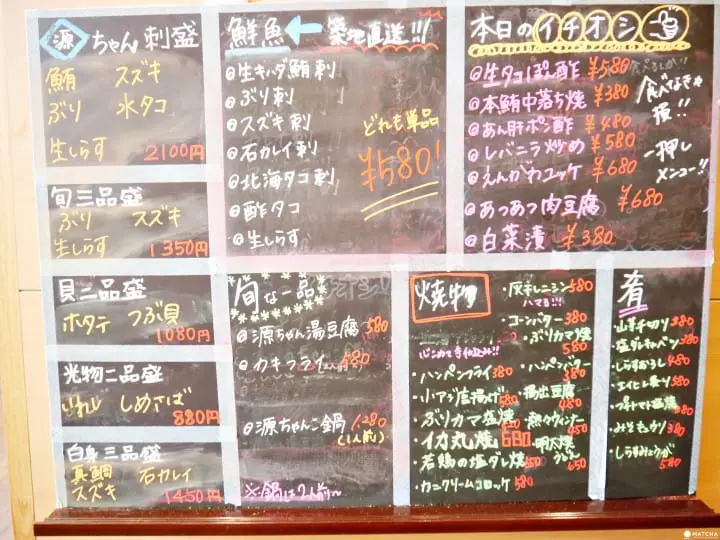 源ちゃん刺盛
鮪 スズキ
ぶり 水タコ
生しらす
2100円
旬三品盛
ぶり スズキ
生しらす 1350円
貝二品盛
ホタテ つぶ貝
1080円
光物二品盛
しめさば
880円
白身三品盛
真鯛 石カレイ
スズキ 1450円
鮮魚 ← 築地直送!!!
生キハダ鮪刺
ぶり刺
スズキ刺
石カレイ刺
北海タコ刺
酢タコ
生しらす
どれも単品
¥580!
本日のイチオシ
生タコぽん酢 ¥580
本鮪中落ち焼 ¥380
あん肝ポン酢 ¥480
レバニラ炒め ¥580
えんがわユッケ ¥680
あつあつ肉豆腐 ¥680
白菜漬 ¥380
食べなきゃ
損!!
一押し
メニュー!!
旬な一品
源ちゃん湯豆腐 580
カキフライ 580
源ちゃんこ鍋 1,280
(1人前)
※鍋は2人前〜
焼物
灰干しニシン 580
コーンバター 380
ぶりカマ焼
580
ハンペンフライ 380
ハンペンバター 380
小アジ唐揚げ 580
揚出豆腐
480
ぶりカマ塩焼
熱々ウィンナー
イカ丸焼 680
明太焼
うどん
650
若鶏の塩ダレ焼
カニクリームコロッケ 580
肴
山芋千切り 380
塩ダレキャベツ 380
しらすおろし 480
エイヒレ炙り 580
みそもろきゅう 380
580
MATCHA